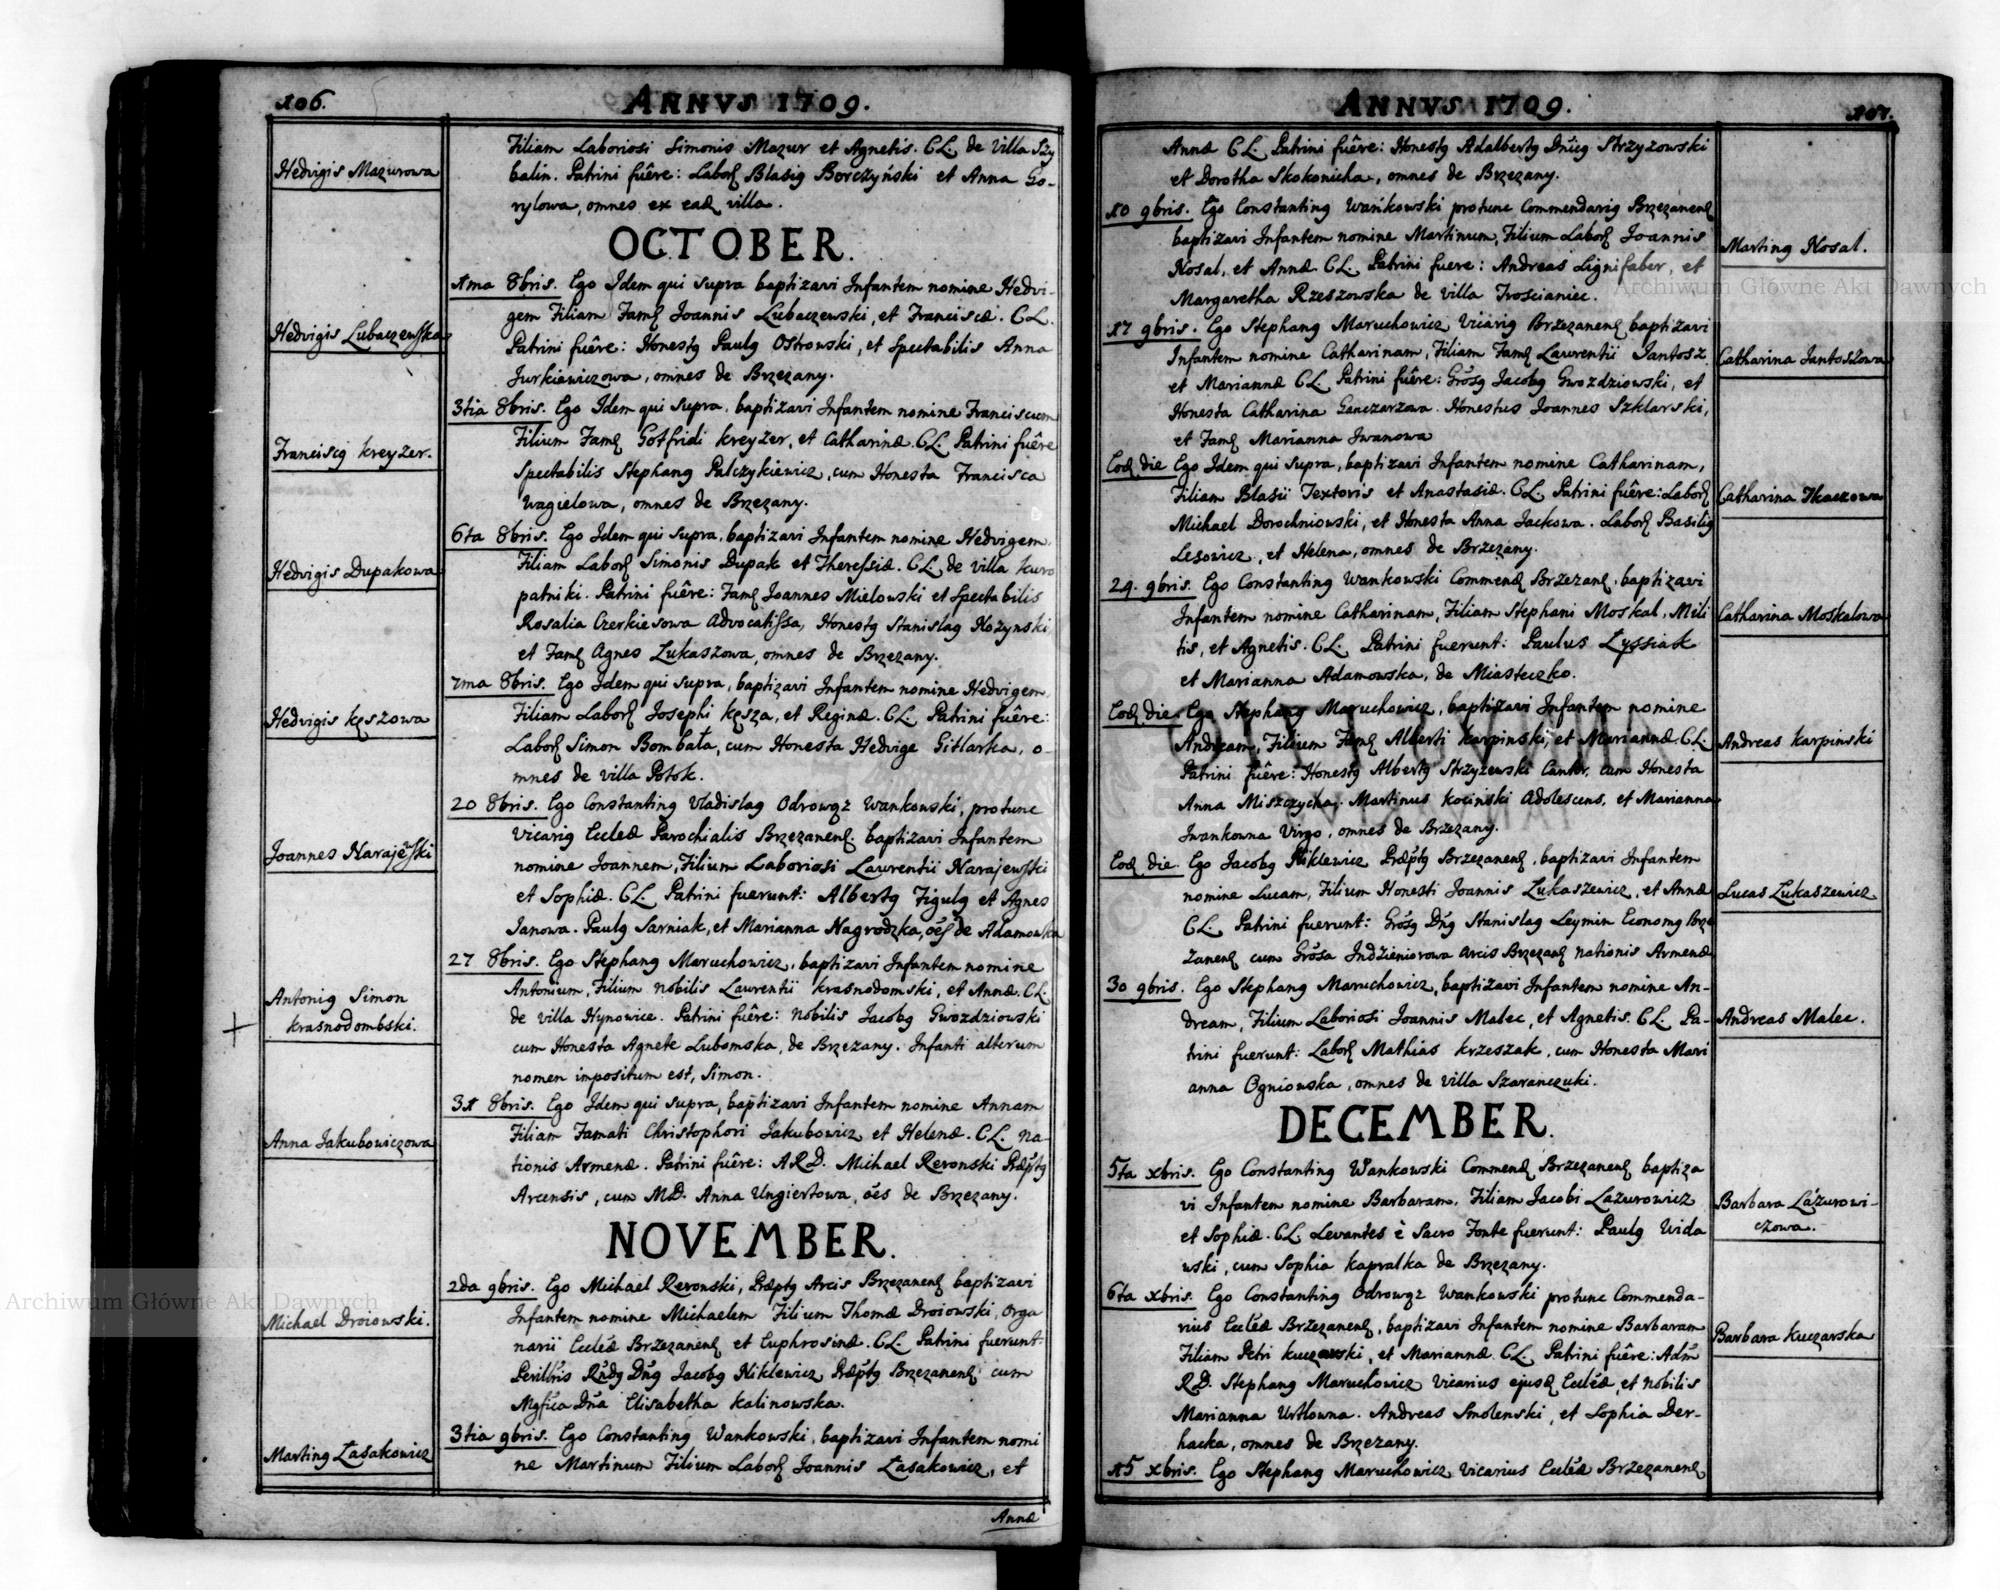 106.
ANNVS 1709.
Hedvigis Mazurowa
Filiam Laboriosi Simonis Mazur et Agnetis. CL. de villa Szy
balin. Patrini fuêre: Laboꝝ Blasiꝯ Borczyński et Anna Go-
rylowa, omnes ex eadꝫ villa.
OCTOBER.
1ma 8bris. Ego Idem qui supra baptizavi Infantem nomine Hedvi-
gem Filiam Famꝫ Joannis Lubaczewski, et Franciscæ. CL.
Hedvigis Lubaczewska
Patrini fuêre: Honestꝯ Paulꝯ Ostrowski, et Spectabilis Anna
Jurkiewiczowa, omnes de Brzezany.
3tia 8bris. Ego Idem qui supra, baptizavi Infantem nomine Franciscum
Filium Famꝫ Gotfridi Kreyzer, et Catharinæ. CL. Patrini fuêre
Franciscꝯ Kreyzer.
Spectabilis Stephanꝯ Palczykiewicz, cum Honesta Francisca
Wagielowa, omnes de Brzezany.
6ta 8bris. Ego Idem qui supra, baptizavi Infantem nomine Hedvigem
Filiam Laboꝝ Simonis Dupak et Theressiæ. CL. de villa Kuro
Hedvigis Dupakowa
patniki. Patrini fuêre: Famꝫ Joannes Mielowski et Spectabilis
Rosalia Czerkiesowa Advocatissa, Honestꝯ Stanislaꝯ Nozynski
et Famꝫ Agnes Lukaszowa, omnes de Brzezany.
7ma 8bris. Ego Idem qui supra, baptizavi Infantem nomine Hedvigem
Filiam Laboꝝ Josephi Kęsza, et Reginæ. CL. Patrini fuêre:
Hedvigis Kęszowa
Laboꝝ Simon Bombała, cum Honesta Hedvige Gitlarka, o-
mnes de villa Potok.
20 8bris. Ego Constantinꝯ Vladislaꝯ Odrowąz Wankowski, protunc
Vicariꝯ Eccleæ Parochialis Brzezanenꝫ baptizavi Infantem
Joannes Narajewski
nomine Joannem, Filium Laboriosi Laurentii Narajewski
et Sophiæ. CL. Patrini fuerunt: Albertꝯ Figulꝯ et Agnes
Janowa. Paulꝯ Sarniak, et Marianna Nagrodzka, oẽs de Adamowka
27 8bris. Ego Stephanꝯ Maruchowicz, baptizavi Infantem nomine
Antonium, Filium nobilis Laurentii Krasnodomski, et Annæ. CL.
Antoniꝯ Simon
Krasnodombski.
de villa Hynowice. Patrini fuêre: nobilis Jacobꝯ Gwozdziowski
cum Honesta Agnete Lubomska, de Brzezany. Infanti alterum
nomen impositum est, Simon.
31 8bris. Ego Idem qui supra, baptizavi Infantem nomine Annam
Filiam Famati Christophori Jakubowicz et Helenæ. CL. Na-
Anna Jakubowiczowa
tionis Armenæ. Patrini fuêre: A.R.D. Michael Reronski Præptꝯ
Arcensis, cum M.D. Anna Ungiertowa, oẽs de Brzezany.
NOVEMBER.
2da 9bris. Ego Michael Reronski, Præptꝯ Arcis Brzezanenꝫ baptizavi
Infantem nomine Michaelem Filium Thomæ Droiowski, Orga
Michael Droiowski.
narii Eccleæ Brzezanenꝫ et Euphrosinæ. CL. Patrini fuerunt:
Perillris Rndꝯ Dnꝯ Jacobꝯ Niklewicz Præptꝯ Brzezanenꝫ cum
Mgfica Dna Elisabetha Kalinowska.
3tia 9bris. Ego Constantinꝯ Wankowski, baptizavi Infantem nomi
Martinꝯ Łasakowicz
ne Martinum Filium Laboꝝ Joannis Łasakowicz, et
Annæ
ANNVS 1709.
107.
Annæ CL. Patrini fuêre: Honestꝯ Adalbertꝯ Dnicꝯ Strzyzowski
et Dorotha Skokonicha, omnes de Brzezany.
10 9bris. Ego Constantinꝯ Wańkowski protunc Commendariꝯ Brzezanenꝫ
baptizavi Infantem nomine Martinum, Filium Laboꝝ Joannis
Martinꝯ Nosal.
Nosal, et Annæ CL. Patrini fuere: Andreas Lignifaber, et
Margaretha Rzeszowska de villa Troscianiec.
17 9bris. Ego Stephanꝯ Maruchowicz Vicariꝯ Brzezanenꝫ baptizavi
Infantem nomine Catharinam, Filiam Famꝫ Laurentii Jantosz
Catharina Jantoszowa
et Mariannæ CL. Patrini fuêre: Grosꝯ Jacobꝯ Gwozdziowski, et
Honesta Catharina Ganczarzowa. Honestus Joannes Szklarski,
et Famꝫ Marianna Iwanowa
Eodꝫ die Ego Idem qui supra, baptizavi Infantem nomine Catharinam,
Filiam Blasii Textoris et Anastasiæ. CL. Patrini fuêre: Laboꝝ
Catharina Tkaczowa
Michael Dorochniowski, et Honesta Anna Jackowa. Laboꝝ Basiliꝯ
Lesowicz, et Helena, omnes de Brzezany.
24. 9bris. Ego Constantinꝯ Wankowski Commendꝫ Brzezanꝫ, baptizavi
Infantem nomine Catharinam, Filiam Stephani Moskal, Mili
Catharina Moskalowa
tis, et Agnetis. CL. Patrini fuerunt: Paulus Łyssiak
et Marianna Adamowska, de Miasteczko.
Eodꝫ die Ego Stephanꝯ Maruchowicz, baptizavi Infantem nomine
Andream, Filium Famꝫ Alberti Karpinski, et Mariannæ. CL.
Andreas Karpinski
Patrini fuêre: Honestꝯ Albertꝯ Strzyzewski Cantor, cum Honesta
Anna Miszczycha. Martinus Kocinski Adolescens, et Marianna
Iwankowna Virgo, omnes de Brzezany.
Eodꝫ die. Ego Jacobꝯ Niklewicz Præptꝯ Brzezanenꝫ, baptizavi Infantem
nomine Lucam, Filium Honesti Joannis Lukaszewicz, et Annæ
Lucas Lukaszewicz
CL. Patrini fuerunt: Grosꝯ Dnꝯ Stanislaꝯ Leymin Economꝯ Brze
zanenꝫ cum Grosa Indzieniorowa Arcis Brzezanꝫ nationis Armenæ
30 9bris. Ego Stephanꝯ Maruchowicz, baptizavi Infantem nomine An-
dream, Filium Laboriosi Joannis Malec, et Agnetis. CL. Pa-
Andreas Malec.
trini fuerunt: Laboꝝ Mathias Krzeszak, cum Honesta Mari
anna Ogniowska, omnes de villa Szaranczuki.
DECEMBER.
5ta xbris. Ego Constantinꝯ Wankowski Commendꝫ Brzezanenꝫ baptiza
vi Infantem nomine Barbaram, Filiam Jacobi Lazurowicz
Barbara Lazurowi-
czowa.
et Sophiæ. CL. Levantes è Sacro Fonte fuerunt: Paulꝯ Wida
wski, cum Sophia Kapralka de Brzezany.
6ta xbris. Ego Constantinꝯ Odrowąz Wankowski protunc Commenda-
rius Eccleæ Brzezanenꝫ, baptizavi Infantem nomine Barbaram
Barbara Kuczarska
Filiam Petri Kuczarski, et Mariannæ. CL. Patrini fuêre: Adm
R.D. Stephanꝯ Maruchowicz Vicarius ejusdꝫ Eccleæ, et nobilis
Marianna Urtlowna. Andreas Smolenski, et Sophia Der-
hacka, omnes de Brzezany.
15 xbris. Ego Stephanꝯ Maruchowicz Vicarius Eccleæ Brzezanenꝫ
Archiwum Główne Akt Dawnych
Archiwum Główne Akt Dawnych